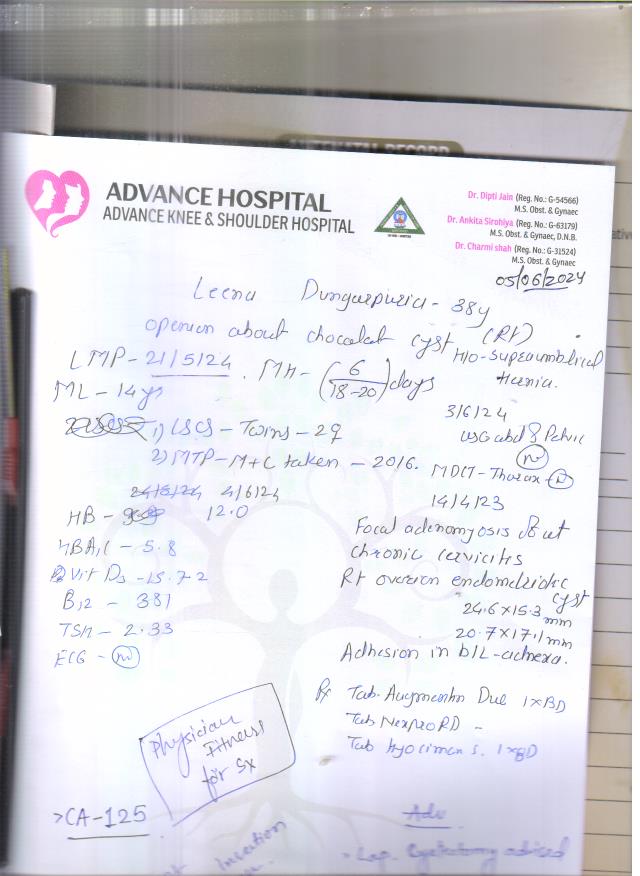 ADVANCE HOSPITAL
ADVANCE KNEE & SHOULDER HOSPITAL
Dr. Dipti Jain (Reg. No.: G-54566)
M.S. Obst. & Gynaec
Dr. Ankita Sirohiya (Reg. No.: G-63179)
M.S. Obst. & Gynaec, D.N.B.
Dr. Charmi shah (Reg. No.: G-31524)
M.S. Obst. & Gynaec
05/06/2024
Leena Dungarpuria - 38y
openion about chocolat cyst (Rt)
LMP - 21/5/24. MH - (6/18-20) days
H/O - Supraumbilical
Hernia.
ML - 14 ys
1) LSCS - Twins - 2♀
2) MTP - M+C taken - 2016.
3/6/24
USG abd & Pelvic
(N)
MDCT - Thorax - (N)
14/4/23
24/5/24 4/6/24
HB - 12.0
HBA1C - 5.8
Vit D3 - 15.72
B12 - 381
TSH - 2.33
ECG - (N)
Focal adenomyosis
chronic cervicitis
Rt overian endometriotic
cyst
24.6 x 15.3 mm
20.7 x 17.1 mm
Adhesion in b/L - adnexa.
Rx Tab. Augmentin Duo 1xBD
Tab Nexpro RD -
Tab Hyocimax S. 1xBD
Physician
Fitness
for Sx
> CA-125
Adv
> Lap. Cystectomy advised